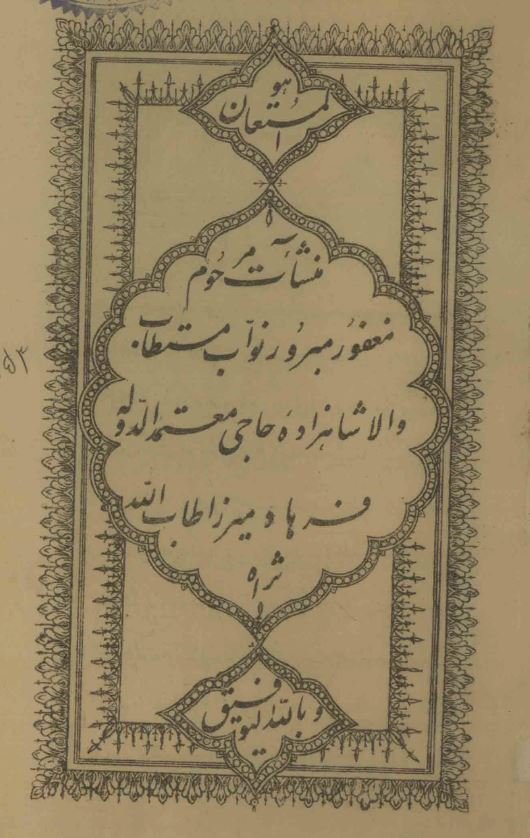 هو
المستعان
منشآت مرحوم
مغفور مبرور نواب مستطاب
والا شاهزاده حاجی معتمد الدوله
فرهاد میرزا طاب الله
ثراه
و بالله التوفیق